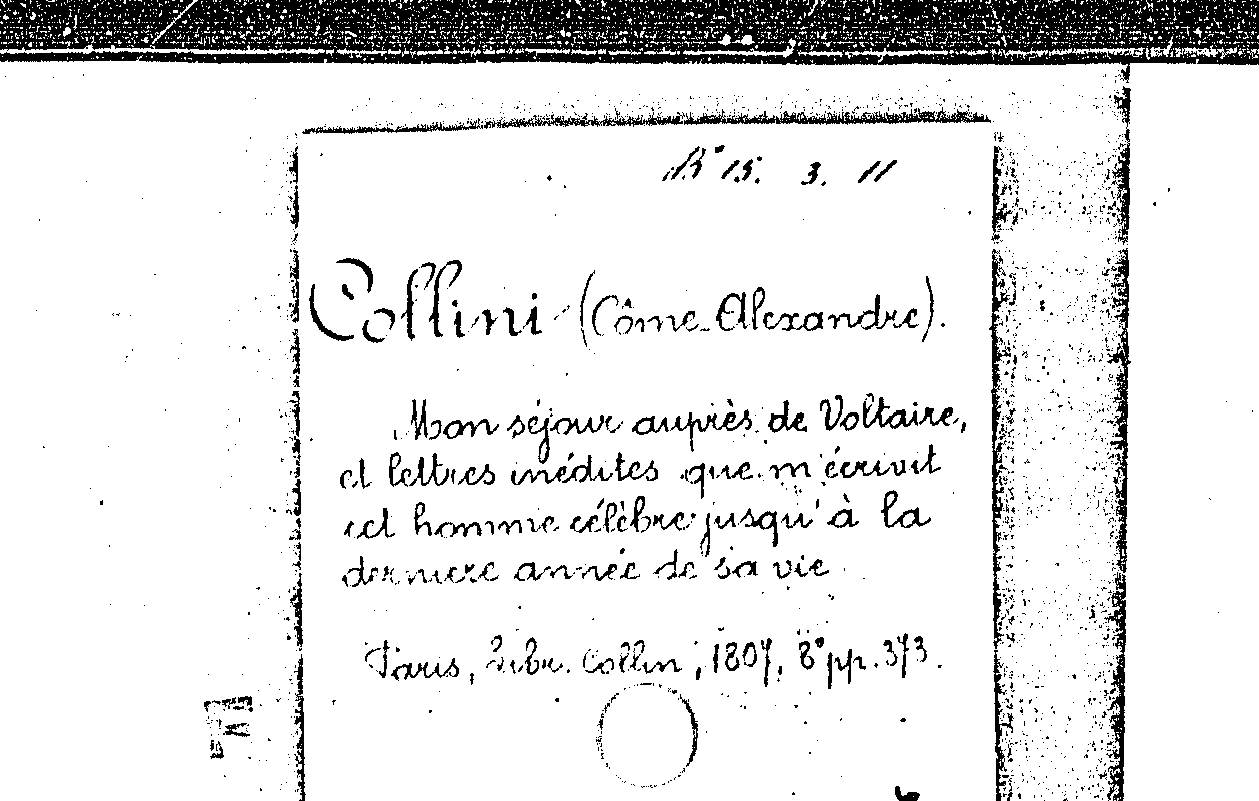 B° 15. 3. 11
Collini (Côme-Alexandre).
Mon séjour auprès de Voltaire,
et lettres inédites que m'écrivit
cet homme célèbre jusqu'à la
derniere année de sa vie
Paris, Libr. Collin, 1807, 8° pp. 373.